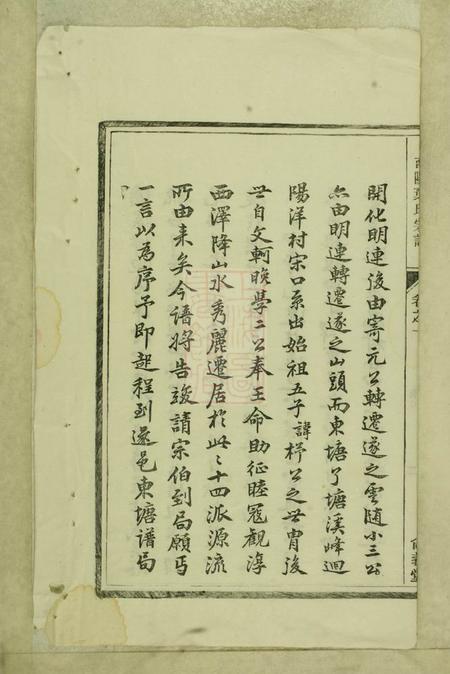 開化明連後由寄元公轉遷遂之雲随小三公
亦由明連轉遷遂之山頭而東塘了塘溪峰迴
陽洋村宋口系出始祖五子諱梓公之世胄後
世自文軻晚學二公奉王命助征睦冦觀淳
西澤降山水秀麗遷居於此此十四派源流
所由来矣今譜將告竣請宗伯到局願丐
一言以為序予即起程到遂邑東塘譜局
卷之一